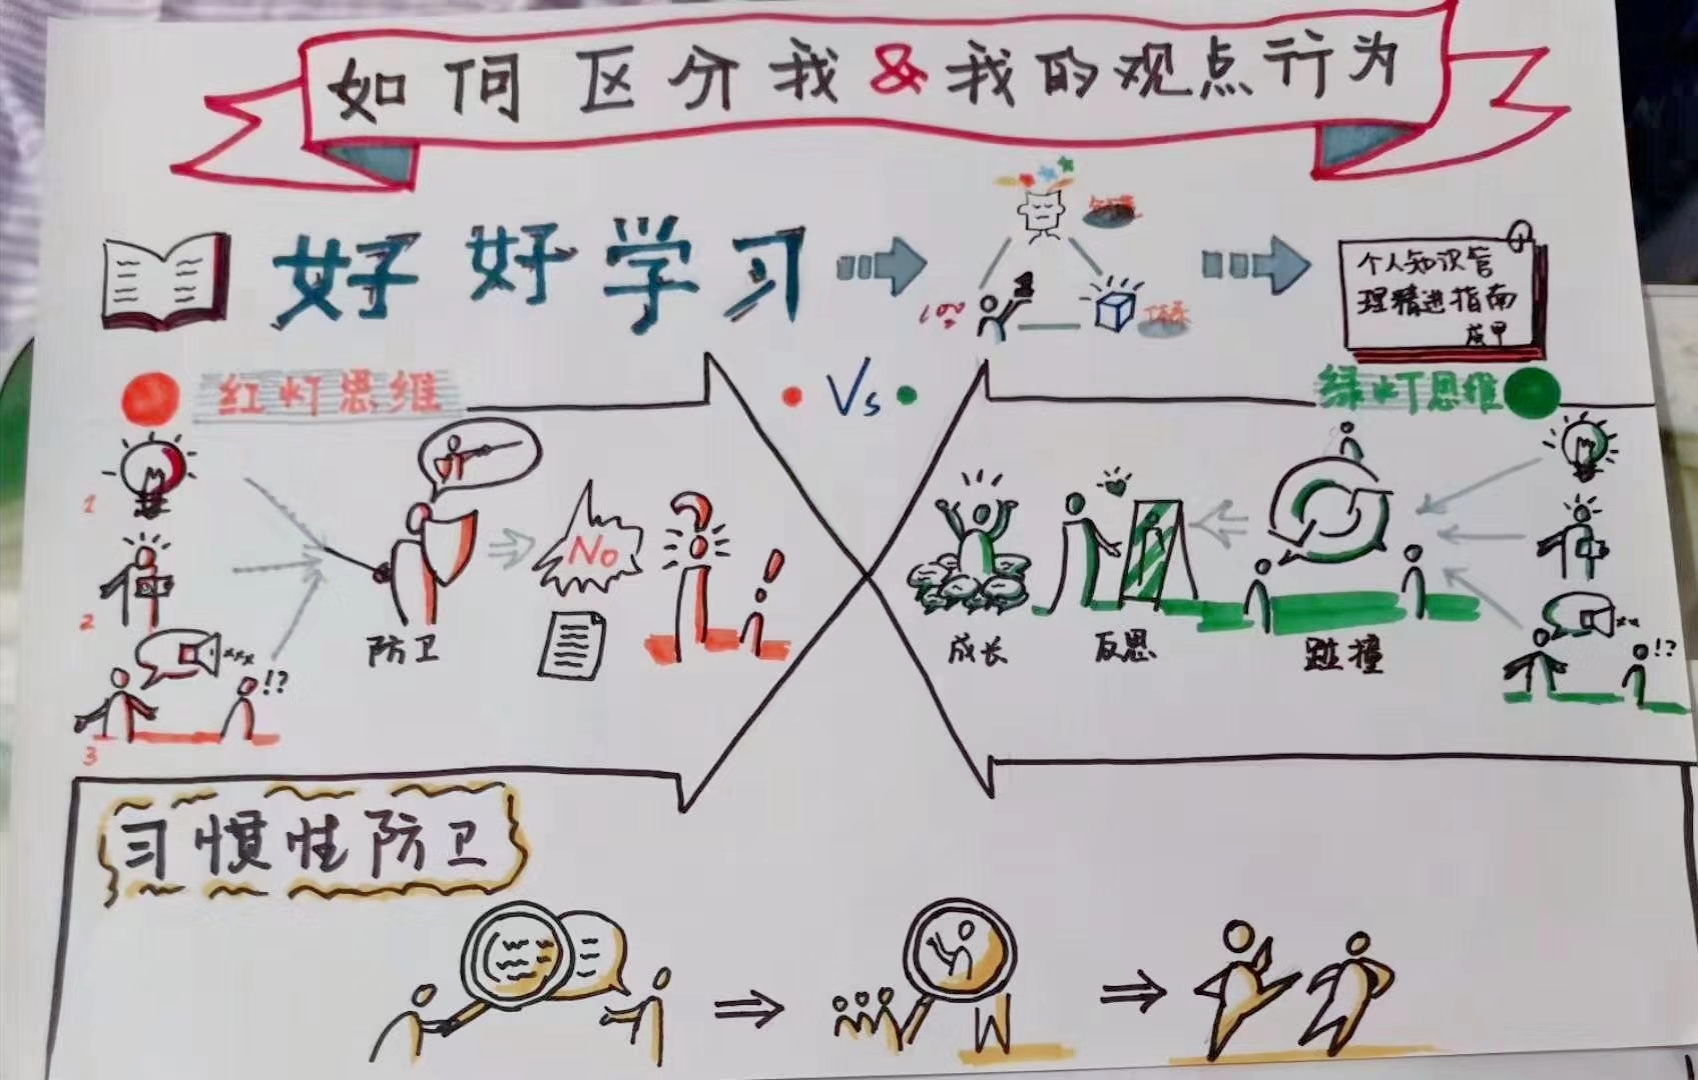 如何区分我&我的观点行为
好好学习
个人知识管
理精进指南
成甲
红灯思维
Vs
绿灯思维
1
2
3
!?
xxx
防卫
No
?
!
成长
反思
碰撞
xx
!?
习惯性防卫